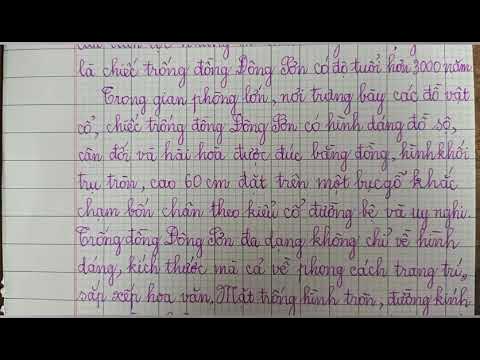 là chiếc trống đồng Đông Sơn có độ tuổi hơn 3000 năm
Trong gian phòng lớn, nơi trưng bày các đồ vật
cổ, chiếc trống đồng Đông Sơn có hình dáng đồ sộ,
cân đối và hài hoà được đúc bằng đồng, hình khối
trụ tròn, cao 60 cm đặt trên một bục gỗ khắc
chạm bốn chân theo kiểu cổ đường bệ và uy nghi.
Trống đồng Đông Sơn đa dạng không chỉ về hình
dáng, kích thước mà cả về phong cách trang trí,
sắp xếp hoa văn. Mặt trống hình tròn, đường kính